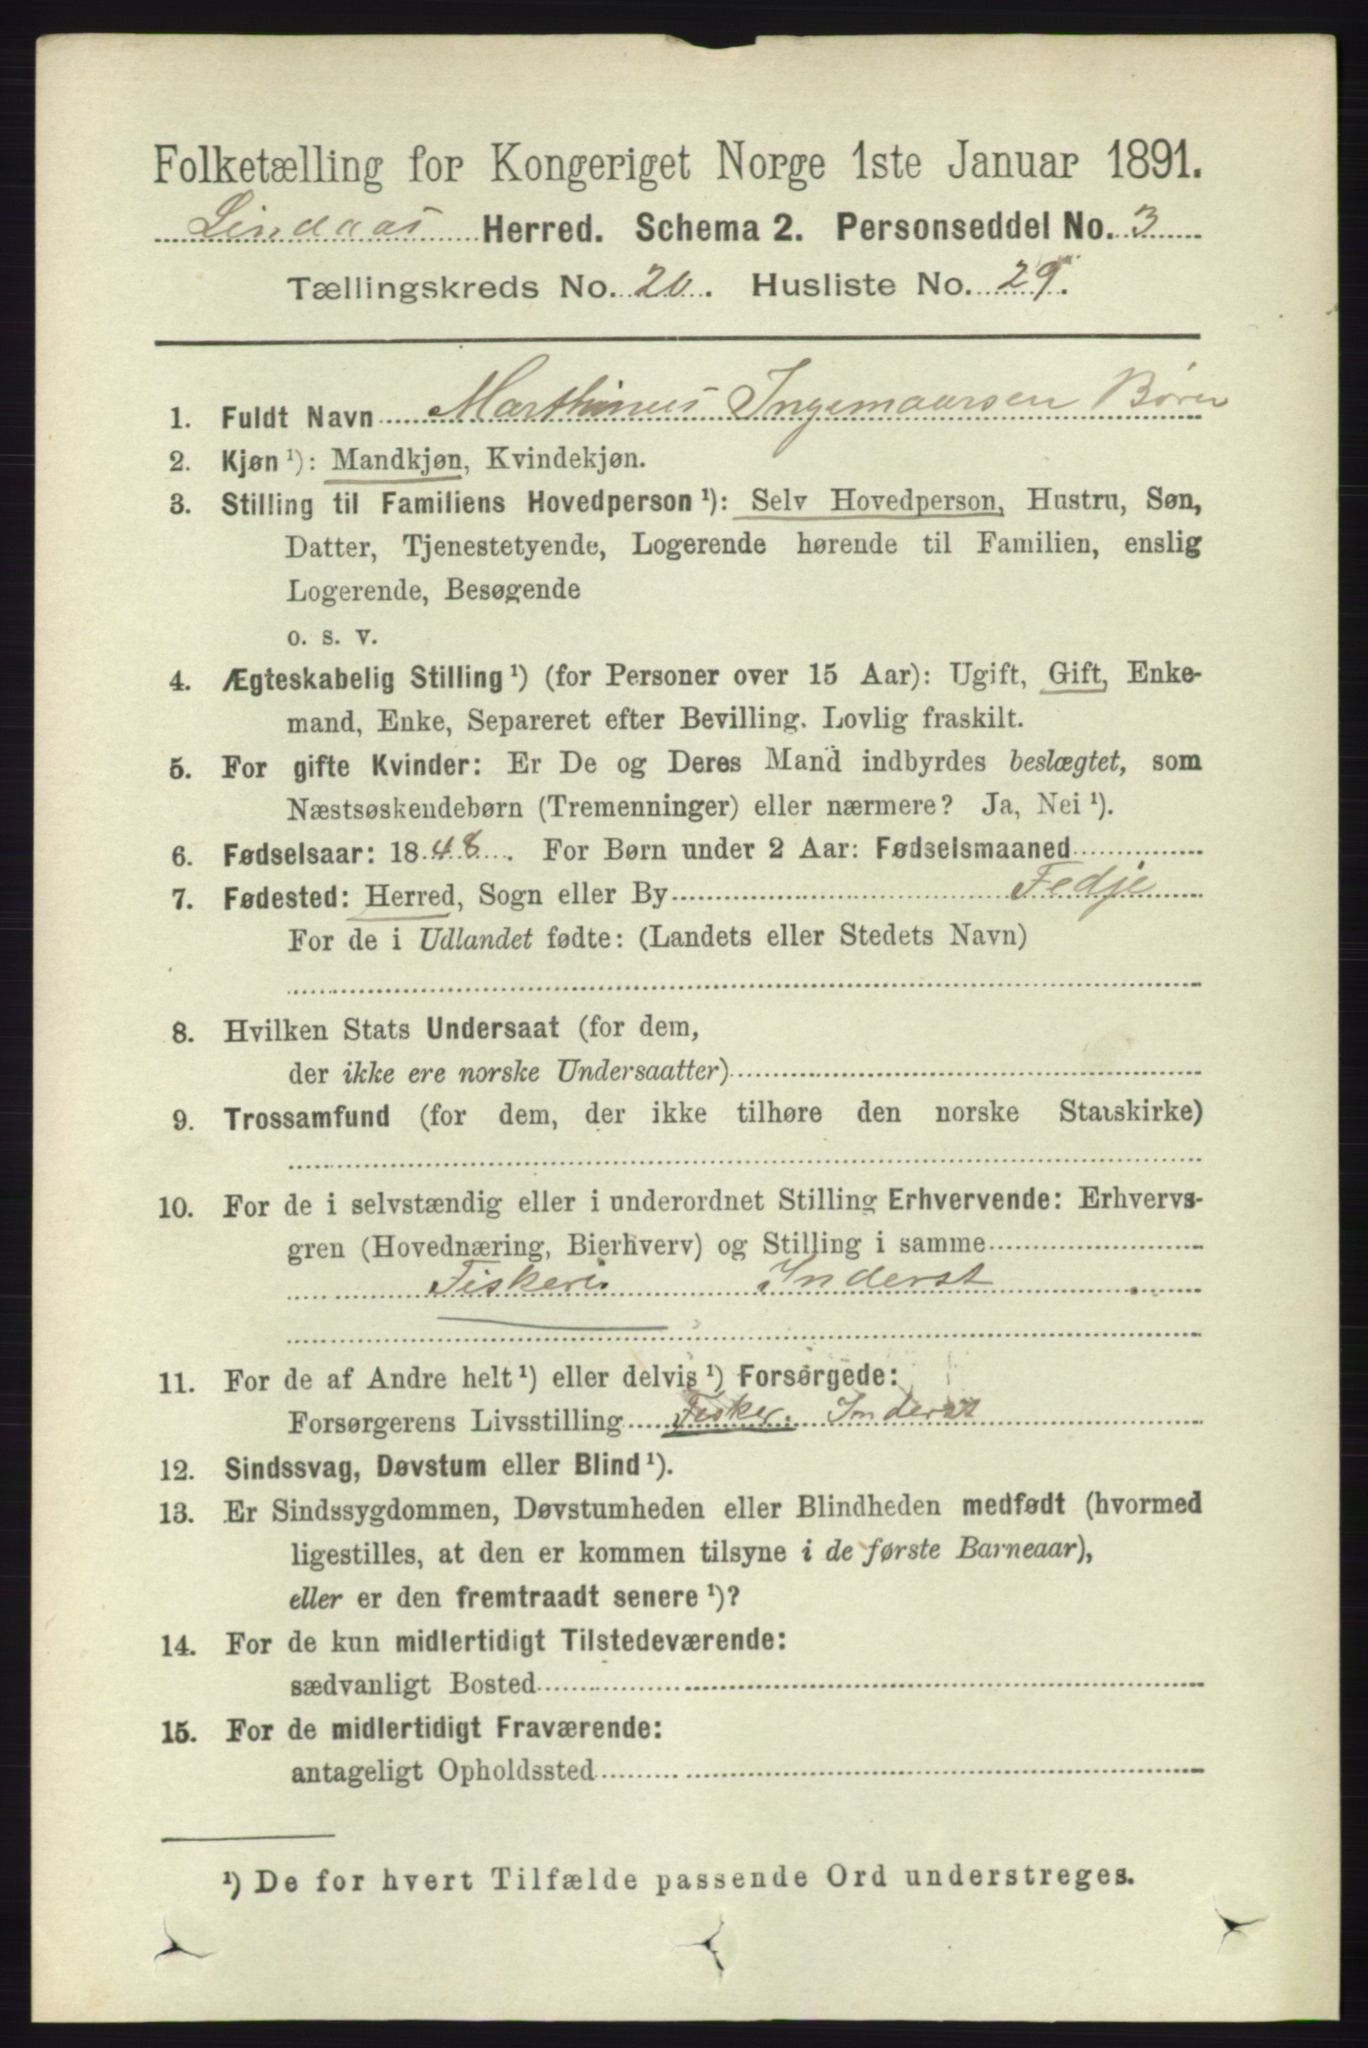 Folketælling for Kongeriget Norge 1ste Januar 1891.
Lindaas Herred. Schema 2. Personseddel No. 3
Tællingskreds No. 20. Husliste No. 29.
1. Fuldt Navn Marthinus Ingemaarsen Børen
2. Kjøn ¹): Mandkjøn, Kvindekjøn.
3. Stilling til Familiens Hovedperson ¹): Selv Hovedperson, Hustru, Søn,
Datter, Tjenestetyende, Logerende hørende til Familien, enslig
Logerende, Besøgende
o. s. v.
4. Ægteskabelig Stilling ¹) (for Personer over 15 Aar): Ugift, Gift, Enke-
mand, Enke, Separeret efter Bevilling. Lovlig fraskilt.
5. For gifte Kvinder: Er De og Deres Mand indbyrdes beslægtet, som
Næstsøskendebørn (Tremenninger) eller nærmere? Ja, Nei ¹).
6. Fødselsaar: 1848. For Børn under 2 Aar: Fødselsmaaned
7. Fødested: Herred, Sogn eller By Fedje
For de i Udlandet fødte: (Landets eller Stedets Navn)
8. Hvilken Stats Undersaat (for dem,
der ikke ere norske Undersaatter)
9. Trossamfund (for dem, der ikke tilhøre den norske Statskirke)
10. For de i selvstændig eller i underordnet Stilling Erhvervende: Erhvervs-
gren (Hovednæring, Bierhverv) og Stilling i samme
Fiskeri Inderst
11. For de af Andre helt ¹) eller delvis ¹) Forsørgede:
Forsørgerens Livsstilling Fisker. Inderst
12. Sindssvag, Døvstum eller Blind ¹).
13. Er Sindssygdommen, Døvstumheden eller Blindheden medfødt (hvormed
ligestilles, at den er kommen tilsyne i de første Barneaar),
eller er den fremtraadt senere ¹)?
14. For de kun midlertidigt Tilstedeværende:
sædvanligt Bosted
15. For de midlertidigt Fraværende:
antageligt Opholdssted
¹) De for hvert Tilfælde passende Ord understreges.